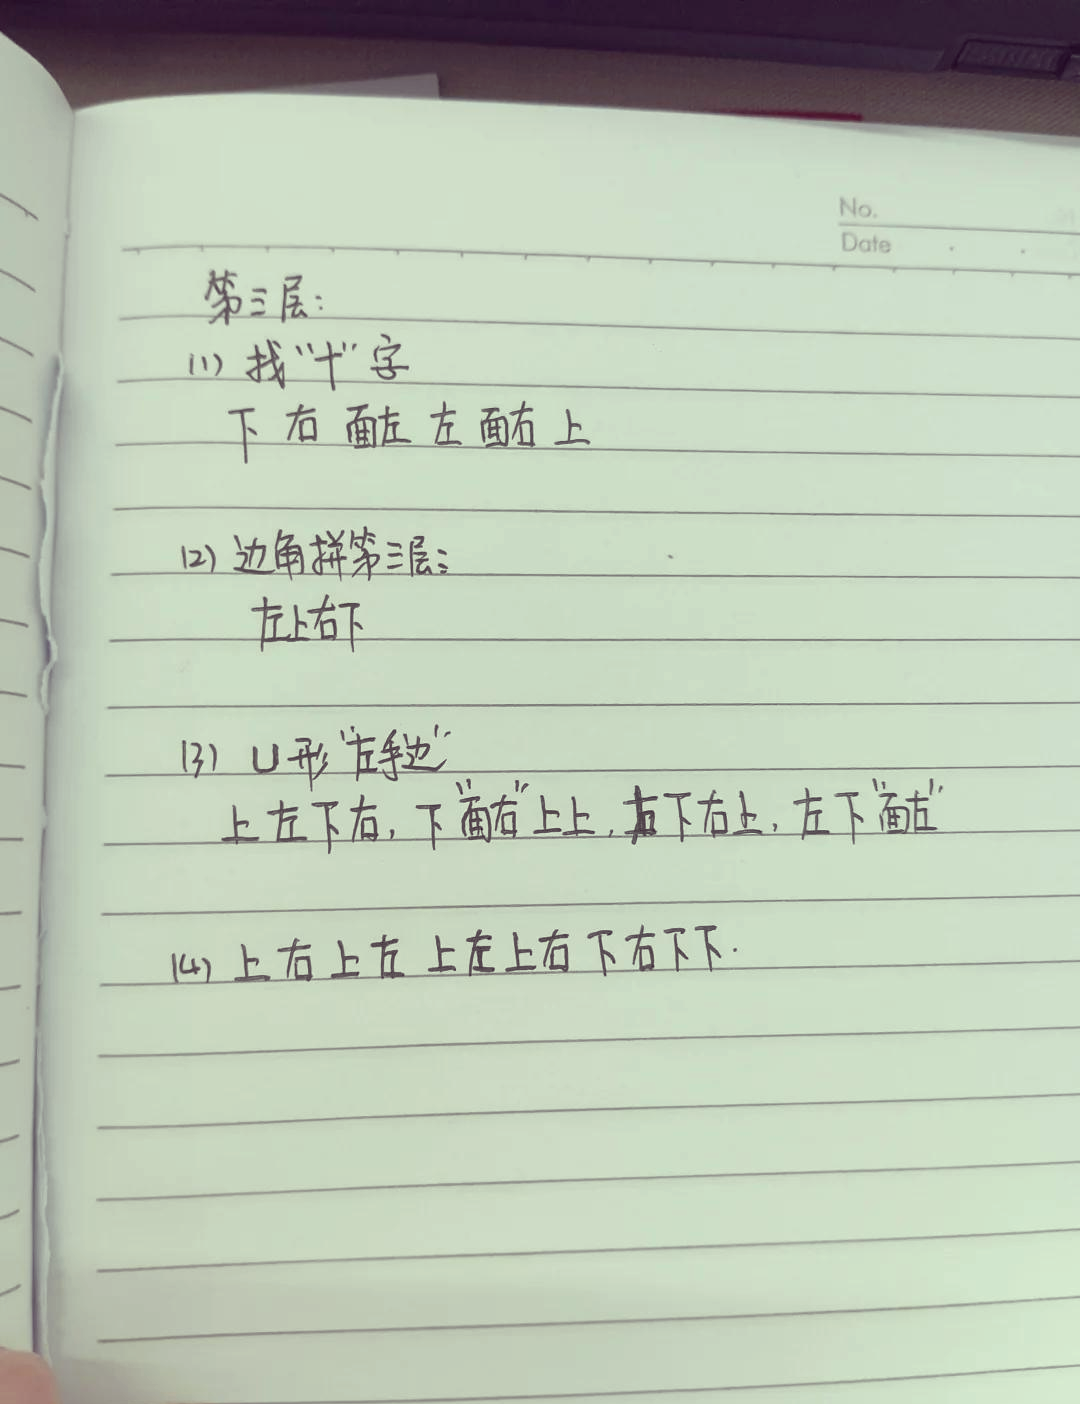 No.
Date
第三层:
(1) 找"十"字
下 右 面左 左 面右 上
(2) 边角拼第三层:
左上右下
(3) U形"左手边"
上左下右, 下"面右"上上, 下右上, 左下"面左"
(4) 上右上左 上左上右 下右下下.